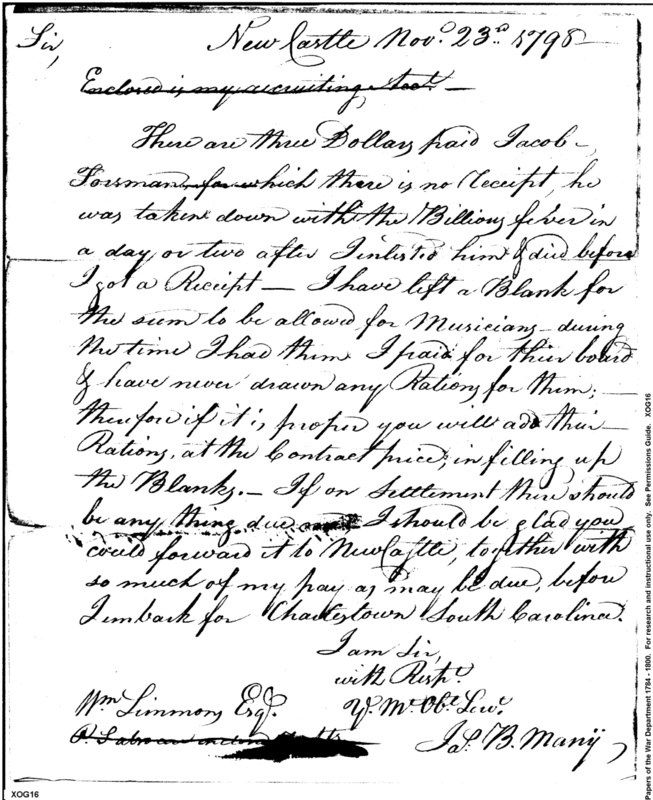 Sir,
New Castle Nov.r 23.rd 1798
Enclosed is my recruiting Acct. —
There are three Dollars paid Jacob
Forsman for which there is no Receipt, he
was taken down with the Billious fever in
a day or two after I inlisted him & died before
I got a Receipt — I have left a Blank for
the sum to be allowed for Musicians – during
the time I had them I paid for their board
& have never drawn any Rations for them; —
therefore if it is proper you will add their —
Rations, at the Contract price, in filling up
the Blanks. — If on Settlement there should
be any thing due I should be glad you
could forward it to New Castle, together with
so much of my pay as may be due, before
I embark for Charlestown South Carolina.
I am Sir,
with Respt.
Wm Simmons Esqr. Yr. Mt. Obt. Servt.
Jas. B. Many
XOG16
Papers of the War Department 1784 - 1800. For research and instructional use only. See Permissions Guide. XOG16